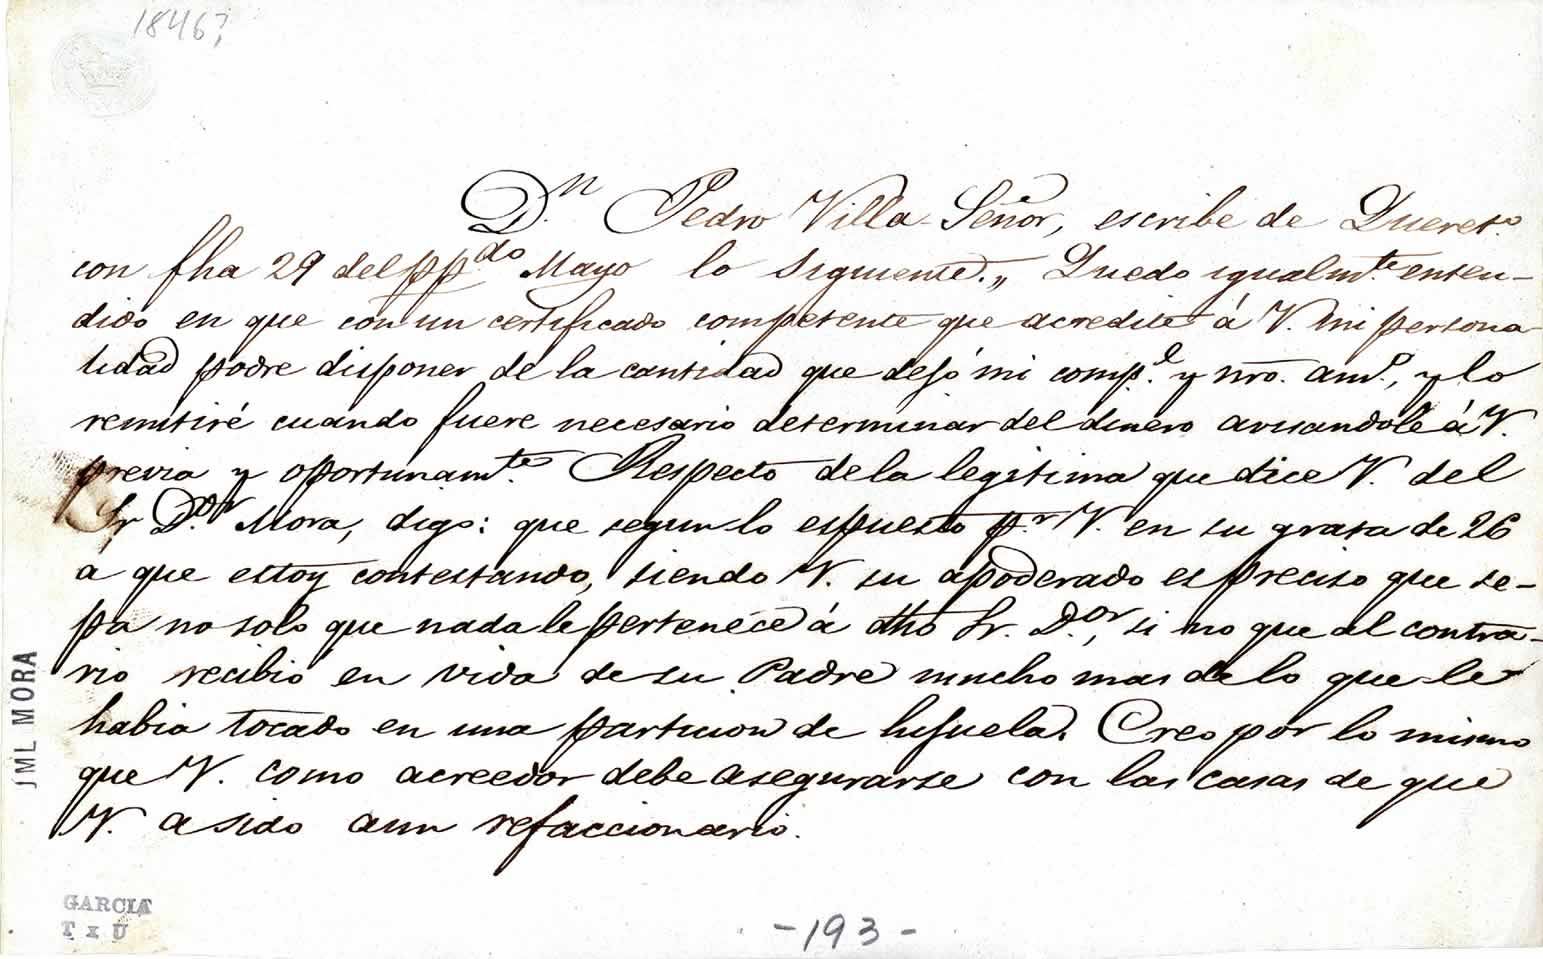 1846?
D.n Pedro Villa-Señor, escribe de Queret.o
con fha 29 del ppdo Mayo lo siguiente.„ Quedo igualm.te enten-
dido en que con un certificado competente que acredite á V. mi persona-
lidad podre disponer de la cantidad que dejó mi comp.e y nro. am.o, y lo
remitiré cuando fuere necesario determinar del dinero avisandole á V.
previa y oportunam.te Respecto de la legitima que dice V. del
Sr D.or Mora, digo: que segun lo espuesto p.r V. en su grata de 26
a que estoy contestando, siendo V. su apoderado es preciso que se-
pa no solo que nada le pertenece á dho Sr. D.or, si no que al contra-
rio recibio en vida de su Padre mucho mas de lo que le
habia tocado en una particion de hijuela. Creo por lo mismo
que V. como acreedor debe asegurarse con las casas de que
V. a sido aun refaccionario.
JML MORA
GARCIA
T x U
-193-